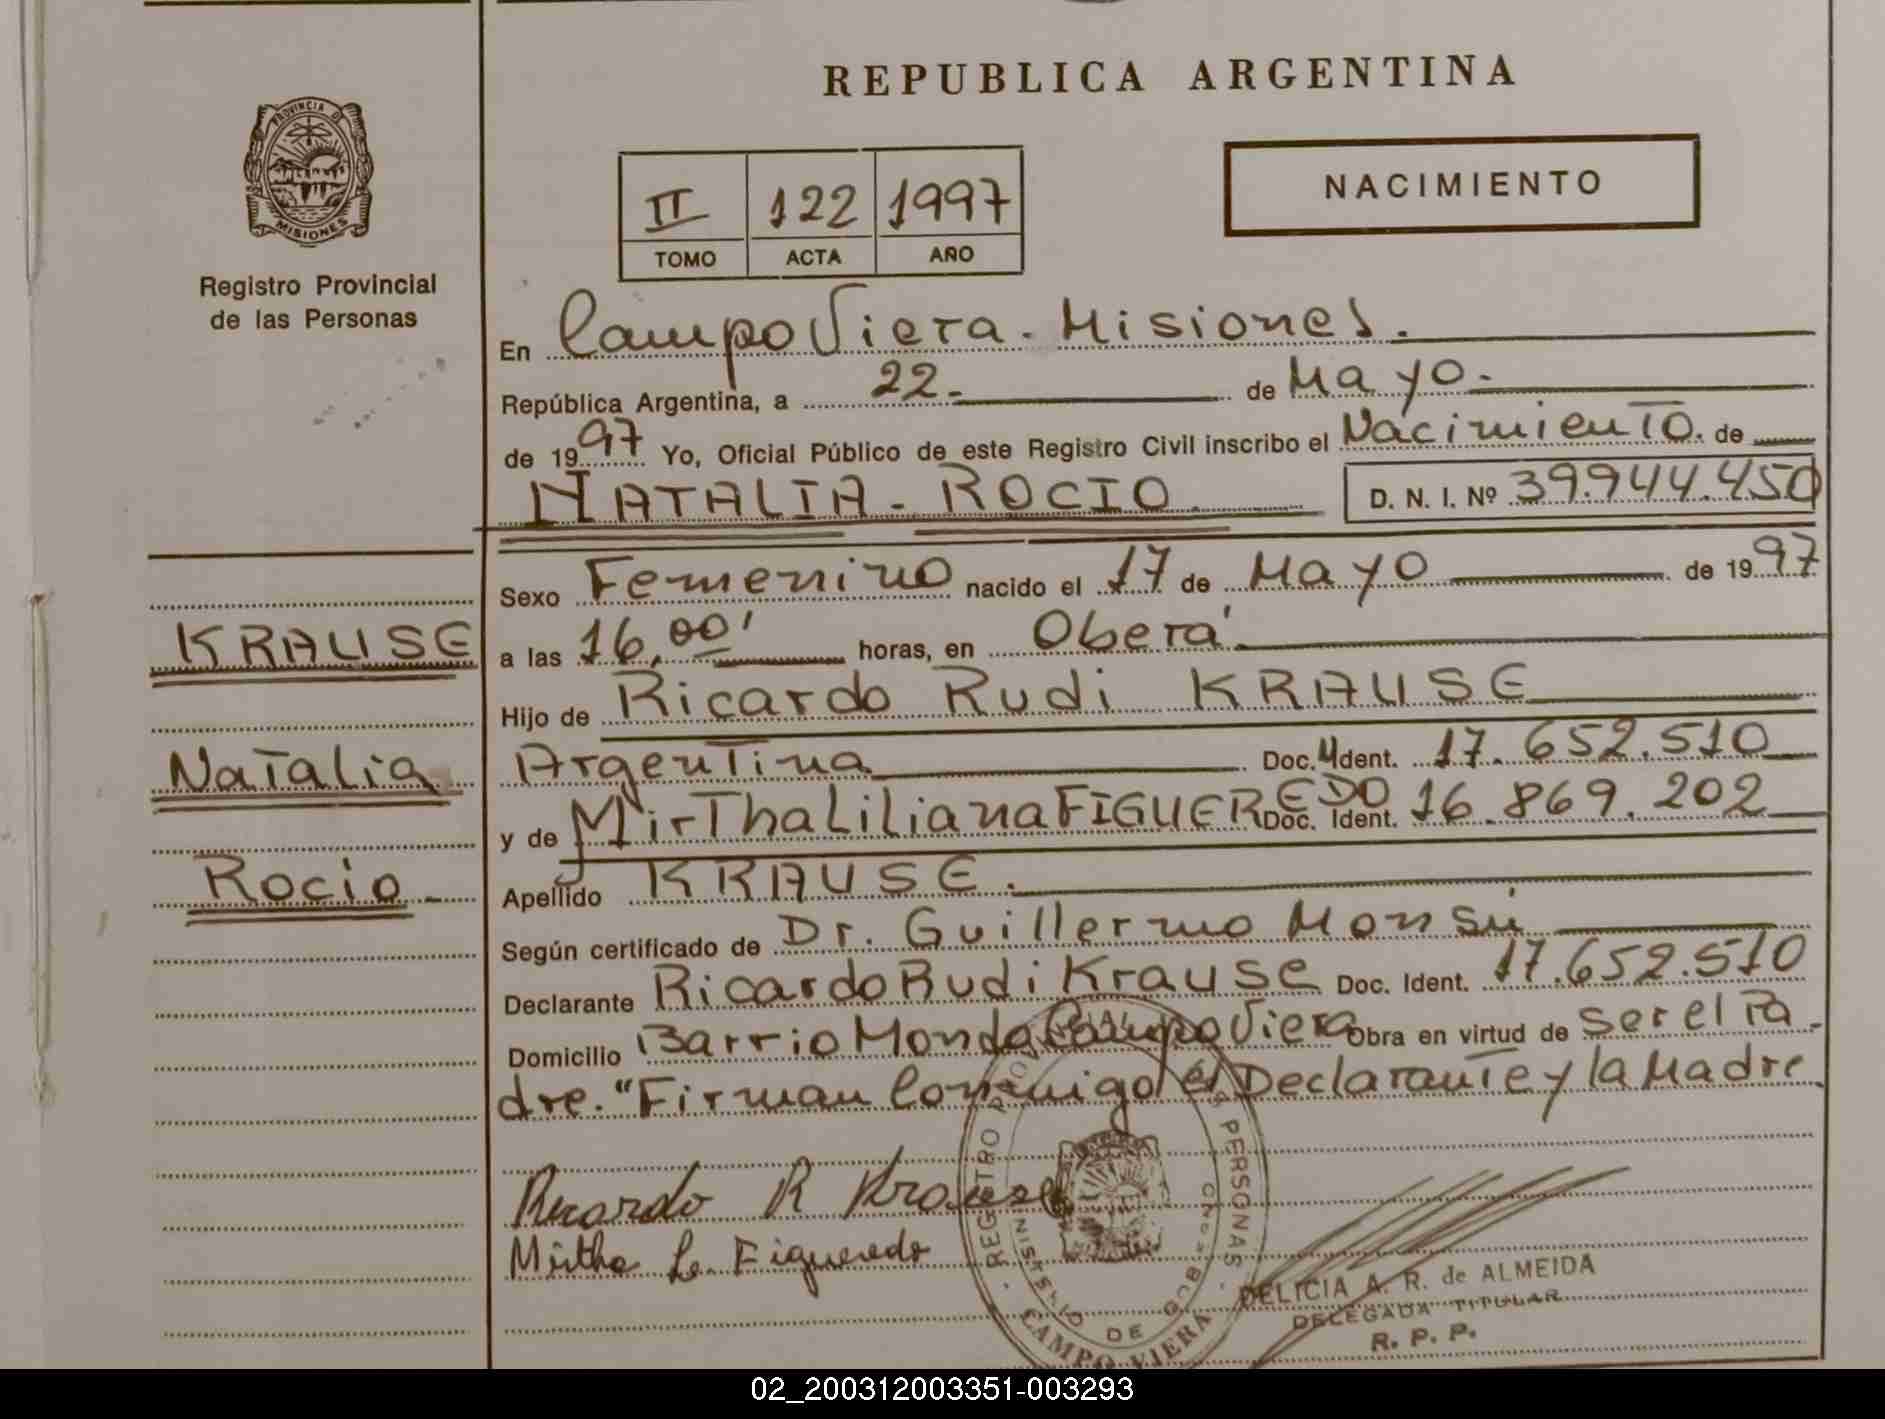 REPUBLICA ARGENTINA
PROVINCIA DE
MISIONES
Registro Provincial
de las Personas
NACIMIENTO
II 122 1997
TOMO ACTA AÑO
En Campo Viera - Misiones.
República Argentina, a 22- de Mayo.-
de 1997 Yo, Oficial Público de este Registro Civil inscribo el Nacimiento. de
NATALIA - ROCIO D. N. I. Nº 39.944.450
Sexo Femenino nacido el 17 de Mayo de 1997
KRAUSE
a las 16,00' horas, en Oberá.
Hijo de Ricardo Rudi KRAUSE
Natalia
Argentina Doc. Ident. 17.652.510
y de Mirtha Liliana FIGUEREDO Doc. Ident. 16.869.202
Rocio -
Apellido KRAUSE.
Según certificado de Dr. Guillermo Monsú
Declarante Ricardo Rudi Krause Doc. Ident. 17.652.510
Domicilio Barrio Monda Campo Viera Obra en virtud de ser el Pa-
dre. "Firman Conmigo el Declarante y la Madre.
Ricardo R Krause
Mirtha L. Figueredo
REGISTRO PERSONAS
MINISTERIO DE GOB
CAMPO VIERA
DELICIA A. R. de ALMEIDA
DELEGADA TITULAR
R. P. P.
02_200312003351-003293